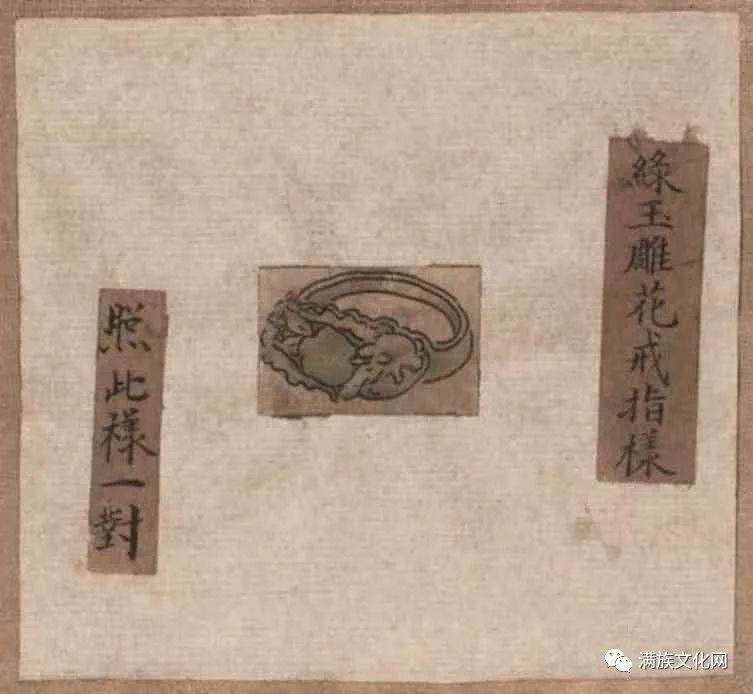 綠玉雕花戒指樣
照此樣一對
满族文化网